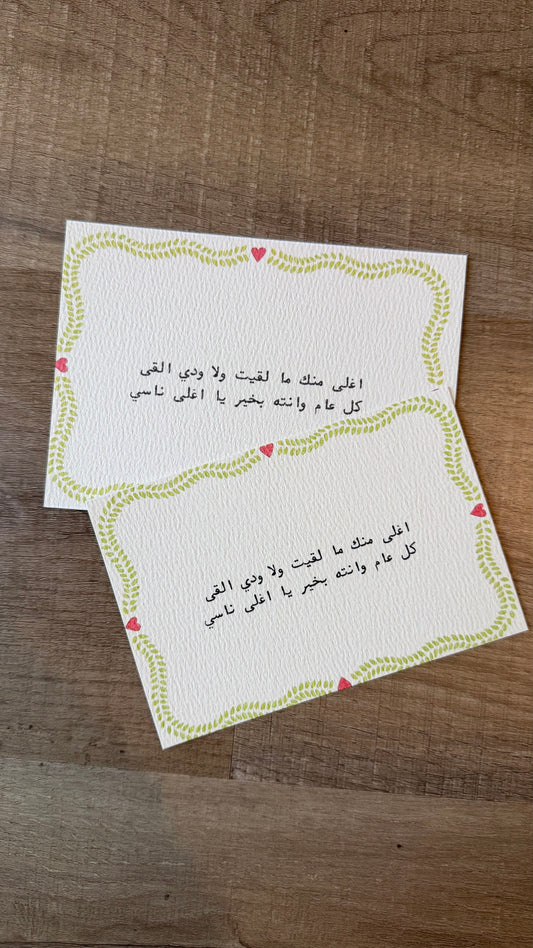 اغلى منك ما لقيت ولا ودي القى
كل عام وانته بخير يا اغلى ناسي
اغلى منك ما لقيت ولا ودي القى
كل عام وانته بخير يا اغلى ناسي